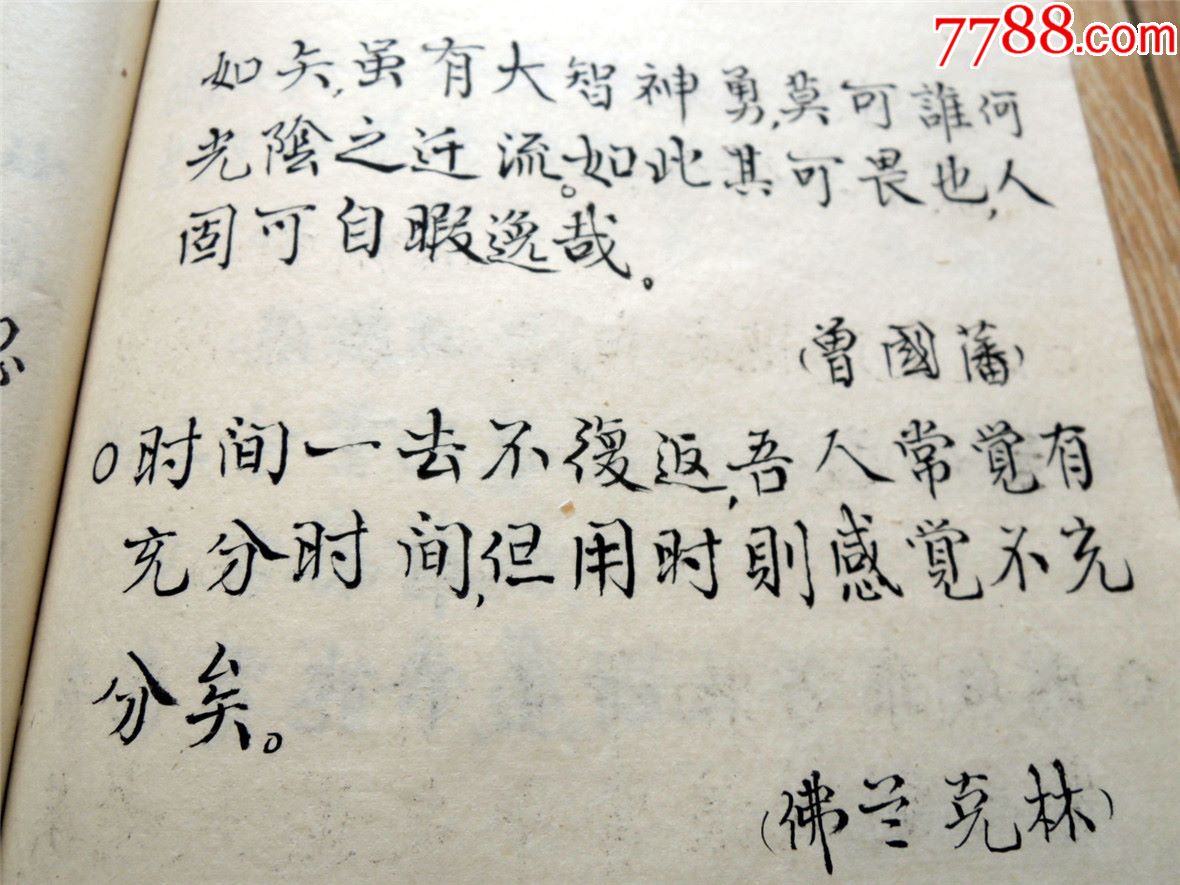 7788.com
如矢,虽有大智神勇,莫可誰何
光陰之迁流。如此其可畏也,人
固可自暇逸哉。
(曾國藩)
○时间一去不復返,吾人常觉有
充分时间,但用时則感觉不充
分矣。
(佛兰克林)